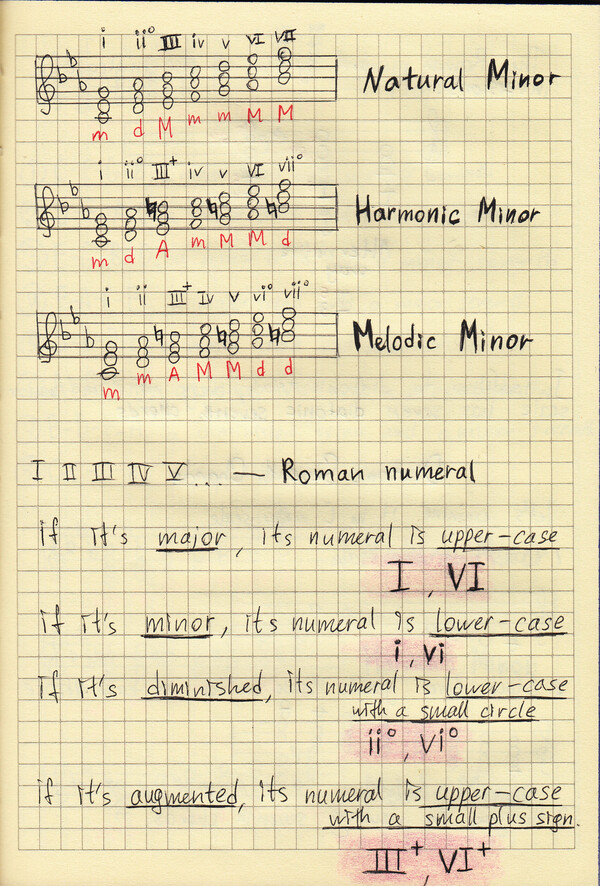 i ii° III iv v VI VII
Natural Minor
m d M m m M M
i ii° III+ iv v VI vii°
Harmonic Minor
m d A m M M d
i ii III+ IV V vi° vii°
Melodic Minor
m m A M M d d
I II III IV V... — Roman numeral
if it's major, its numeral is upper-case
I, VI
if it's minor, its numeral is lower-case
i, vi
if it's diminished, its numeral is lower-case
with a small circle
ii°, vi°
if it's augmented, its numeral is upper-case
with a small plus sign.
III+, VI+